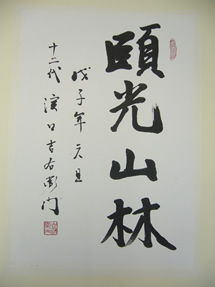 頤光山林
戊子年元旦
十二代 濱口吉右衛门